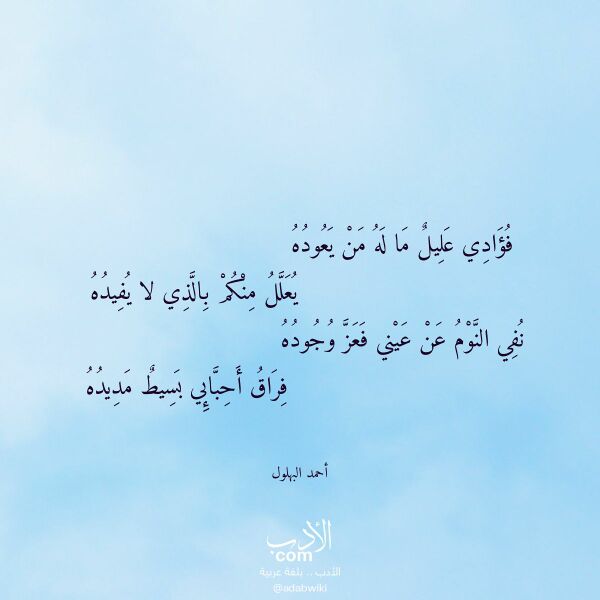 فُؤَادِي عَلِيلٌ مَا لَهُ مَنْ يَعُودُهُ
يُعَلَّلُ مِنْكُمْ بِالَّذِي لا يُفِيدُهُ
نُفِي النَّوْمُ عَنْ عَيْنِي فَعَزَّ وُجُودُهُ
فِرَاقُ أَحِبَّايِي بَسِيطٌ مَدِيدُهُ
أحمد البهلول
الأدب
com
الأدب .. بلغة عربية
@adabwiki